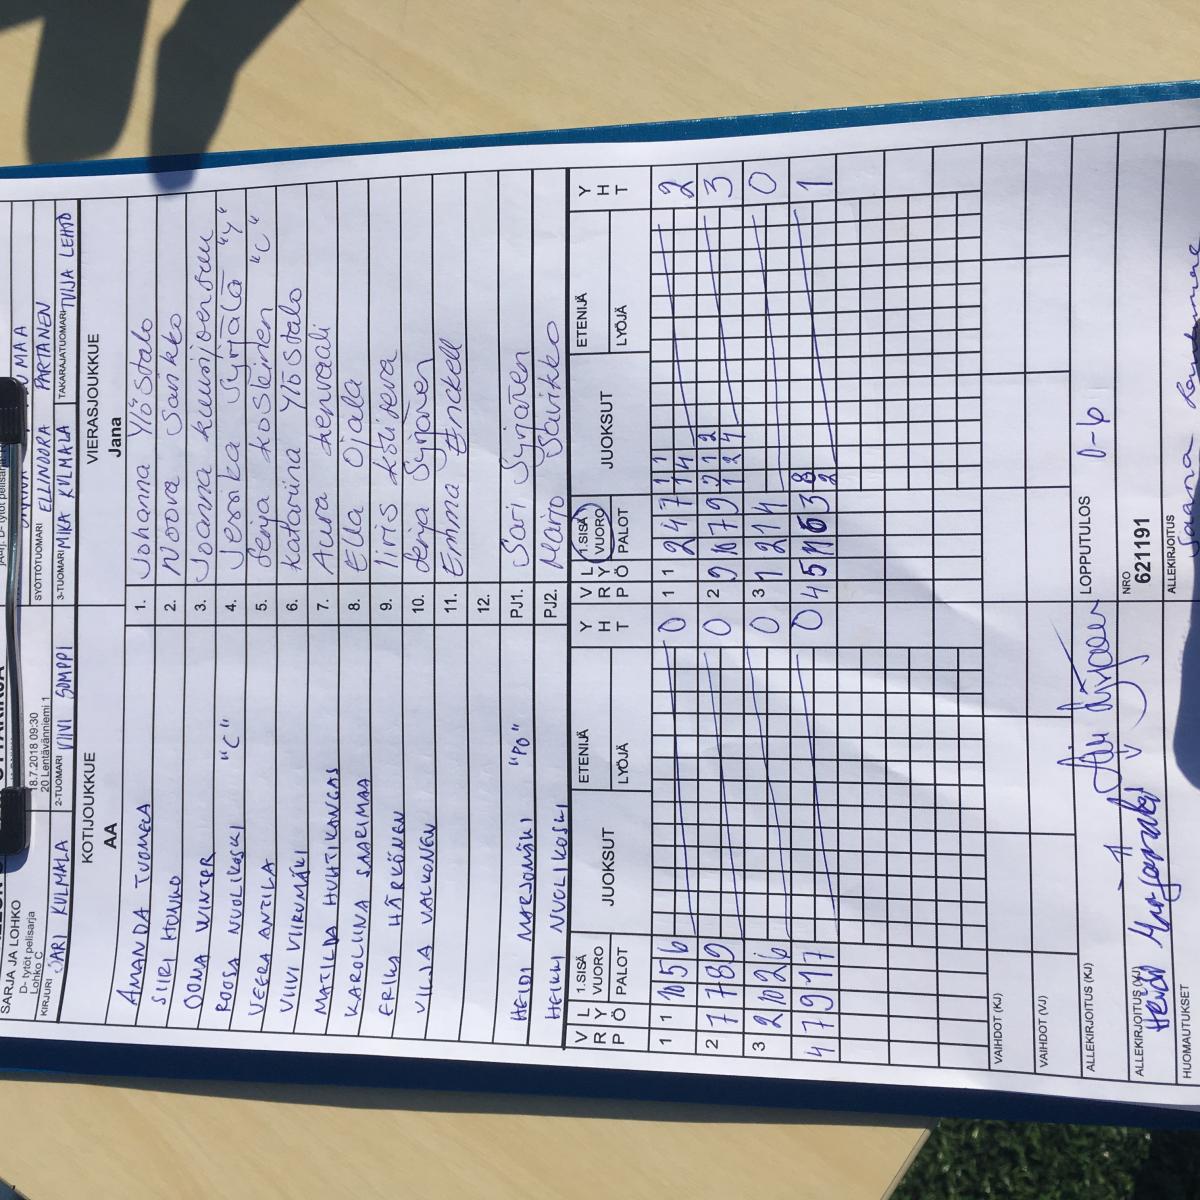 SARJA JA LOHKO
D- tytöt pelisarja
Lohko C
18.7.2018 09:30
20 Lentävänniemi 1
KIRJURI JARI KULMALA
2-TUOMARI VIIVI SOMPPI
SYÖTTÖTUOMARI ELLINOORA PARTANEN
3-TUOMARI MIKA KULMALA
TAKARAJATUOMARI TUIJA LEHTO
KOTIJOUKKUE
AA
VIERASJOUKKUE
Jana
AMANDA TUOMELA 1. Johanna Ylöstalo
SIIRI HUNIKO 2. Noora Sarkko
OONA WINTER 3. Joanna
ROOSA NUOLIKOSKI "C" 4. Jessika Syrjälä "Y"
VEERA ANTILA 5. Senja Kosteinen "C"
VIIVI VIIRUMÄKI 6. Katariina Ylöstalo
MATILDA HUHTIKANGAS 7. Aura Kenvaali
KAROLIINA SAARIMAA 8. Ella Ojala
ERIKA HÄRKÖNEN 9. Iiris
VILJA VALKONEN 10. Senja Syrjänen
11. Emma Enckell
12.
HEIDI MARJOMÄKI "PO" PJ1. Sari Syrjänen
HEIKKI NUOLIKOSKI PJ2. Marjo
V R P L Y Ö 1.SISÄ VUORO PALOT JUOKSUT ETENIJÄ LYÖJÄ Y H T V R P L Y Ö 1.SISÄ VUORO PALOT JUOKSUT ETENIJÄ LYÖJÄ Y H T
1 1 10 5 6 0 1 1 2 4 7 2
2 7 7 8 9 0 2 9 10 7 9 3
3 2 10 2 6 0 3 1 2 1 4 0
4 7 9 1 7 0 4 5 1
VAIHDOT (KJ)
VAIHDOT (VJ)
ALLEKIRJOITUS (KJ)
LOPPUTULOS 0-6
ALLEKIRJOITUS (VJ)
NRO
621191
HUOMAUTUKSET
ALLEKIRJOITUS